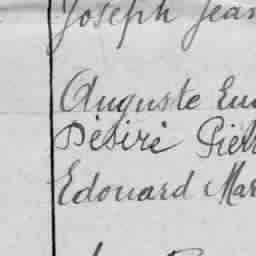 Joseph Jean
Auguste Eu
Désiré Pierr
Edouard Mar